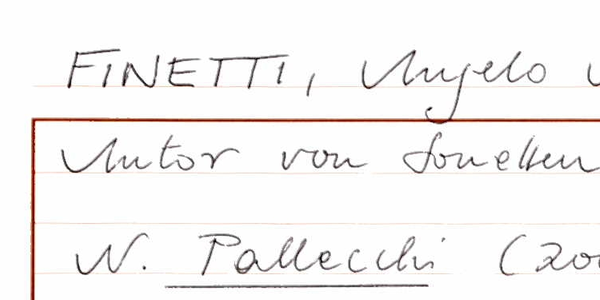 FINETTI, Angelo
Autor von Sonetten
N. Pallecchi (20